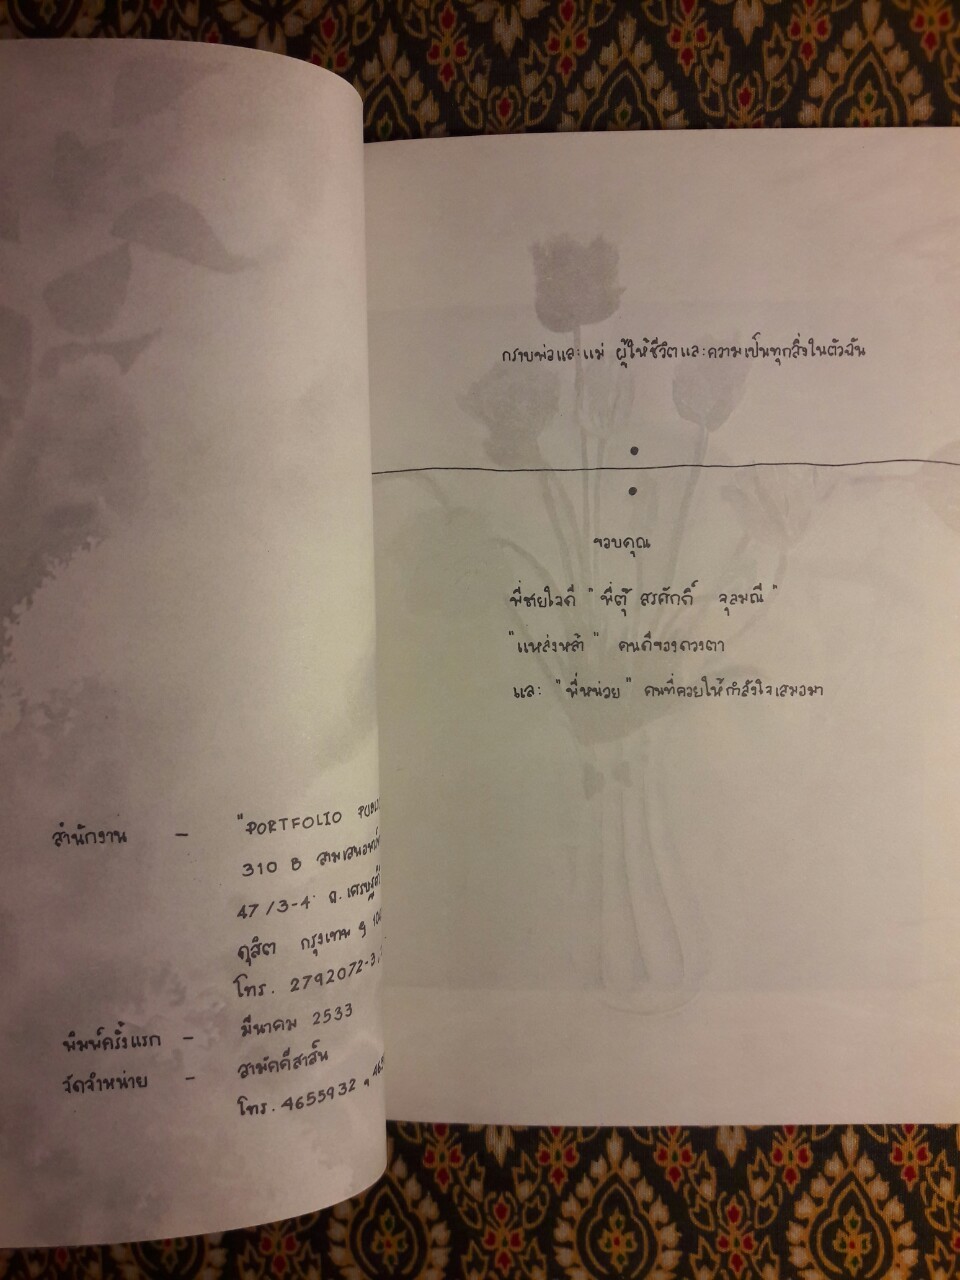 สำนักงาน – "PORTFOLIO
310 B
47/3-4 ถ.เศรษฐ
ดุสิต กรุงเทพฯ
โทร. 2792072-3,
พิมพ์ครั้งแรก – มีนาคม 2533
จัดจำหน่าย – สามัคคีสาส์น
โทร. 4655932,
กราบพ่อและแม่ ผู้ให้ชีวิตและความเป็นทุกสิ่งในตัวฉัน
ขอบคุณ
พี่ชายใจดี "พี่ตุ้ สรศักดิ์ จุลมณี"
"แหล่งหล้า" คนดีของดวงตา
และ "พี่หน่อย" คนที่คอยให้กำลังใจเสมอมา